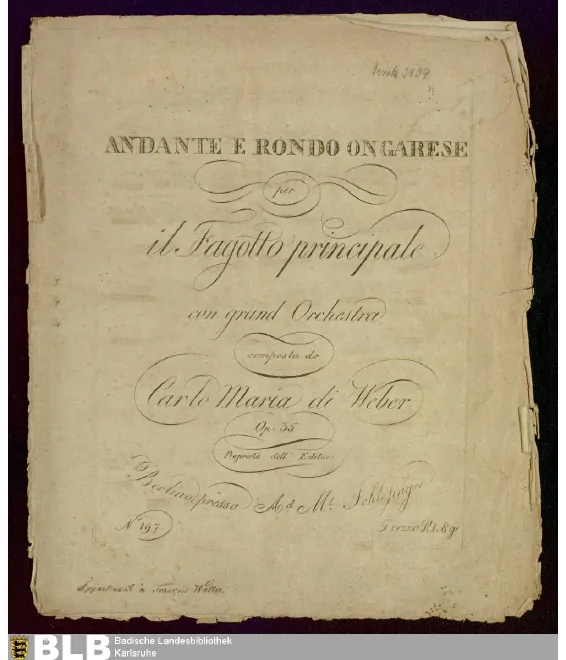 3894
ANDANTE E RONDO ONGARESE
per
il Fagotto principale
con grand Orchestra
composta da
Carlo Maria di Weber
Op. 35
Proprietà dell' Editore
Berlino presso Ad. Mt. Schlesinger
No. 197
Prezzo Rt. 8 gr
Appartenant à François Walter.
BLB Badische Landesbibliothek
Karlsruhe